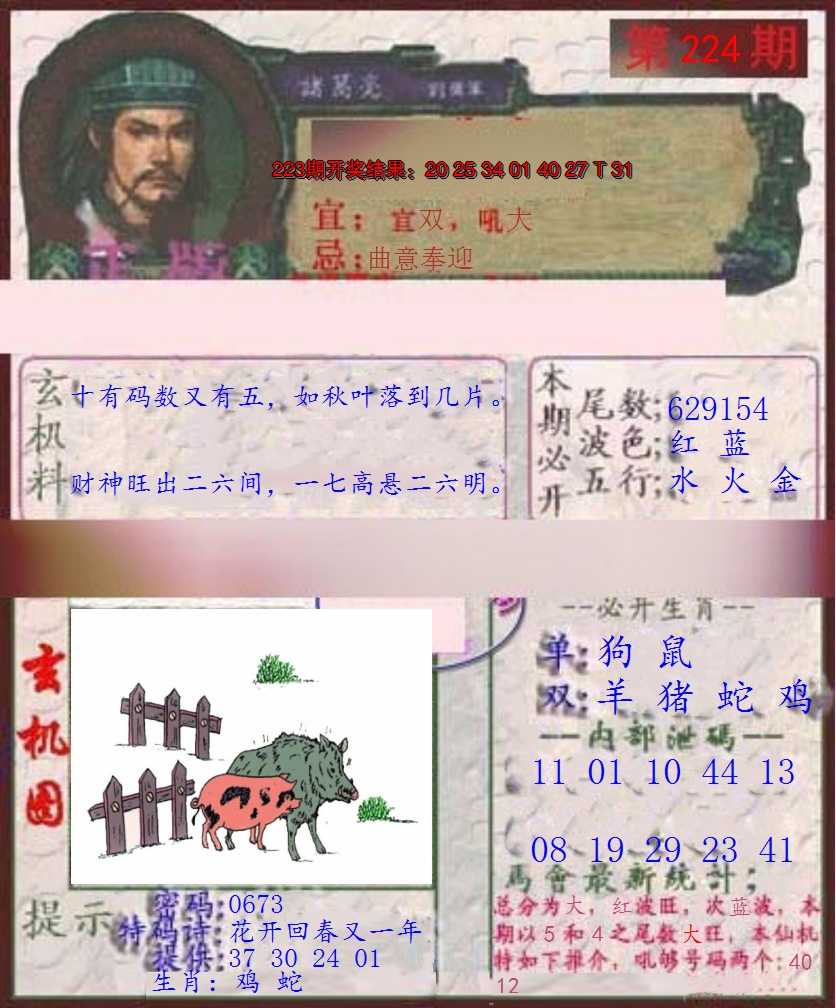 第 224 期
諸葛亮
223期开奖结果：20 25 34 01 40 27 T 31
宜：宜双，吼大
忌：曲意奉迎
正版
玄机料
十有码数又有五，如秋叶落到几片。
财神旺出二六间，一七高悬二六明。
本期必开
尾数；629154
波色；红 蓝
五行；水 火 金
--必开生肖--
单：狗 鼠
双：羊 猪 蛇 鸡
—内部泄碼—
11 01 10 44 13
08 19 29 23 41
玄机图
馬會最新統計；
总分为大，红波旺，次蓝波，本
期以 5 和 4 之尾数大旺，本仙机
特如下推介，吼够号码两个：40
12
提示
密码：0673
特码诗：花开回春又一年
提供：37 30 24 01
生肖：鸡 蛇